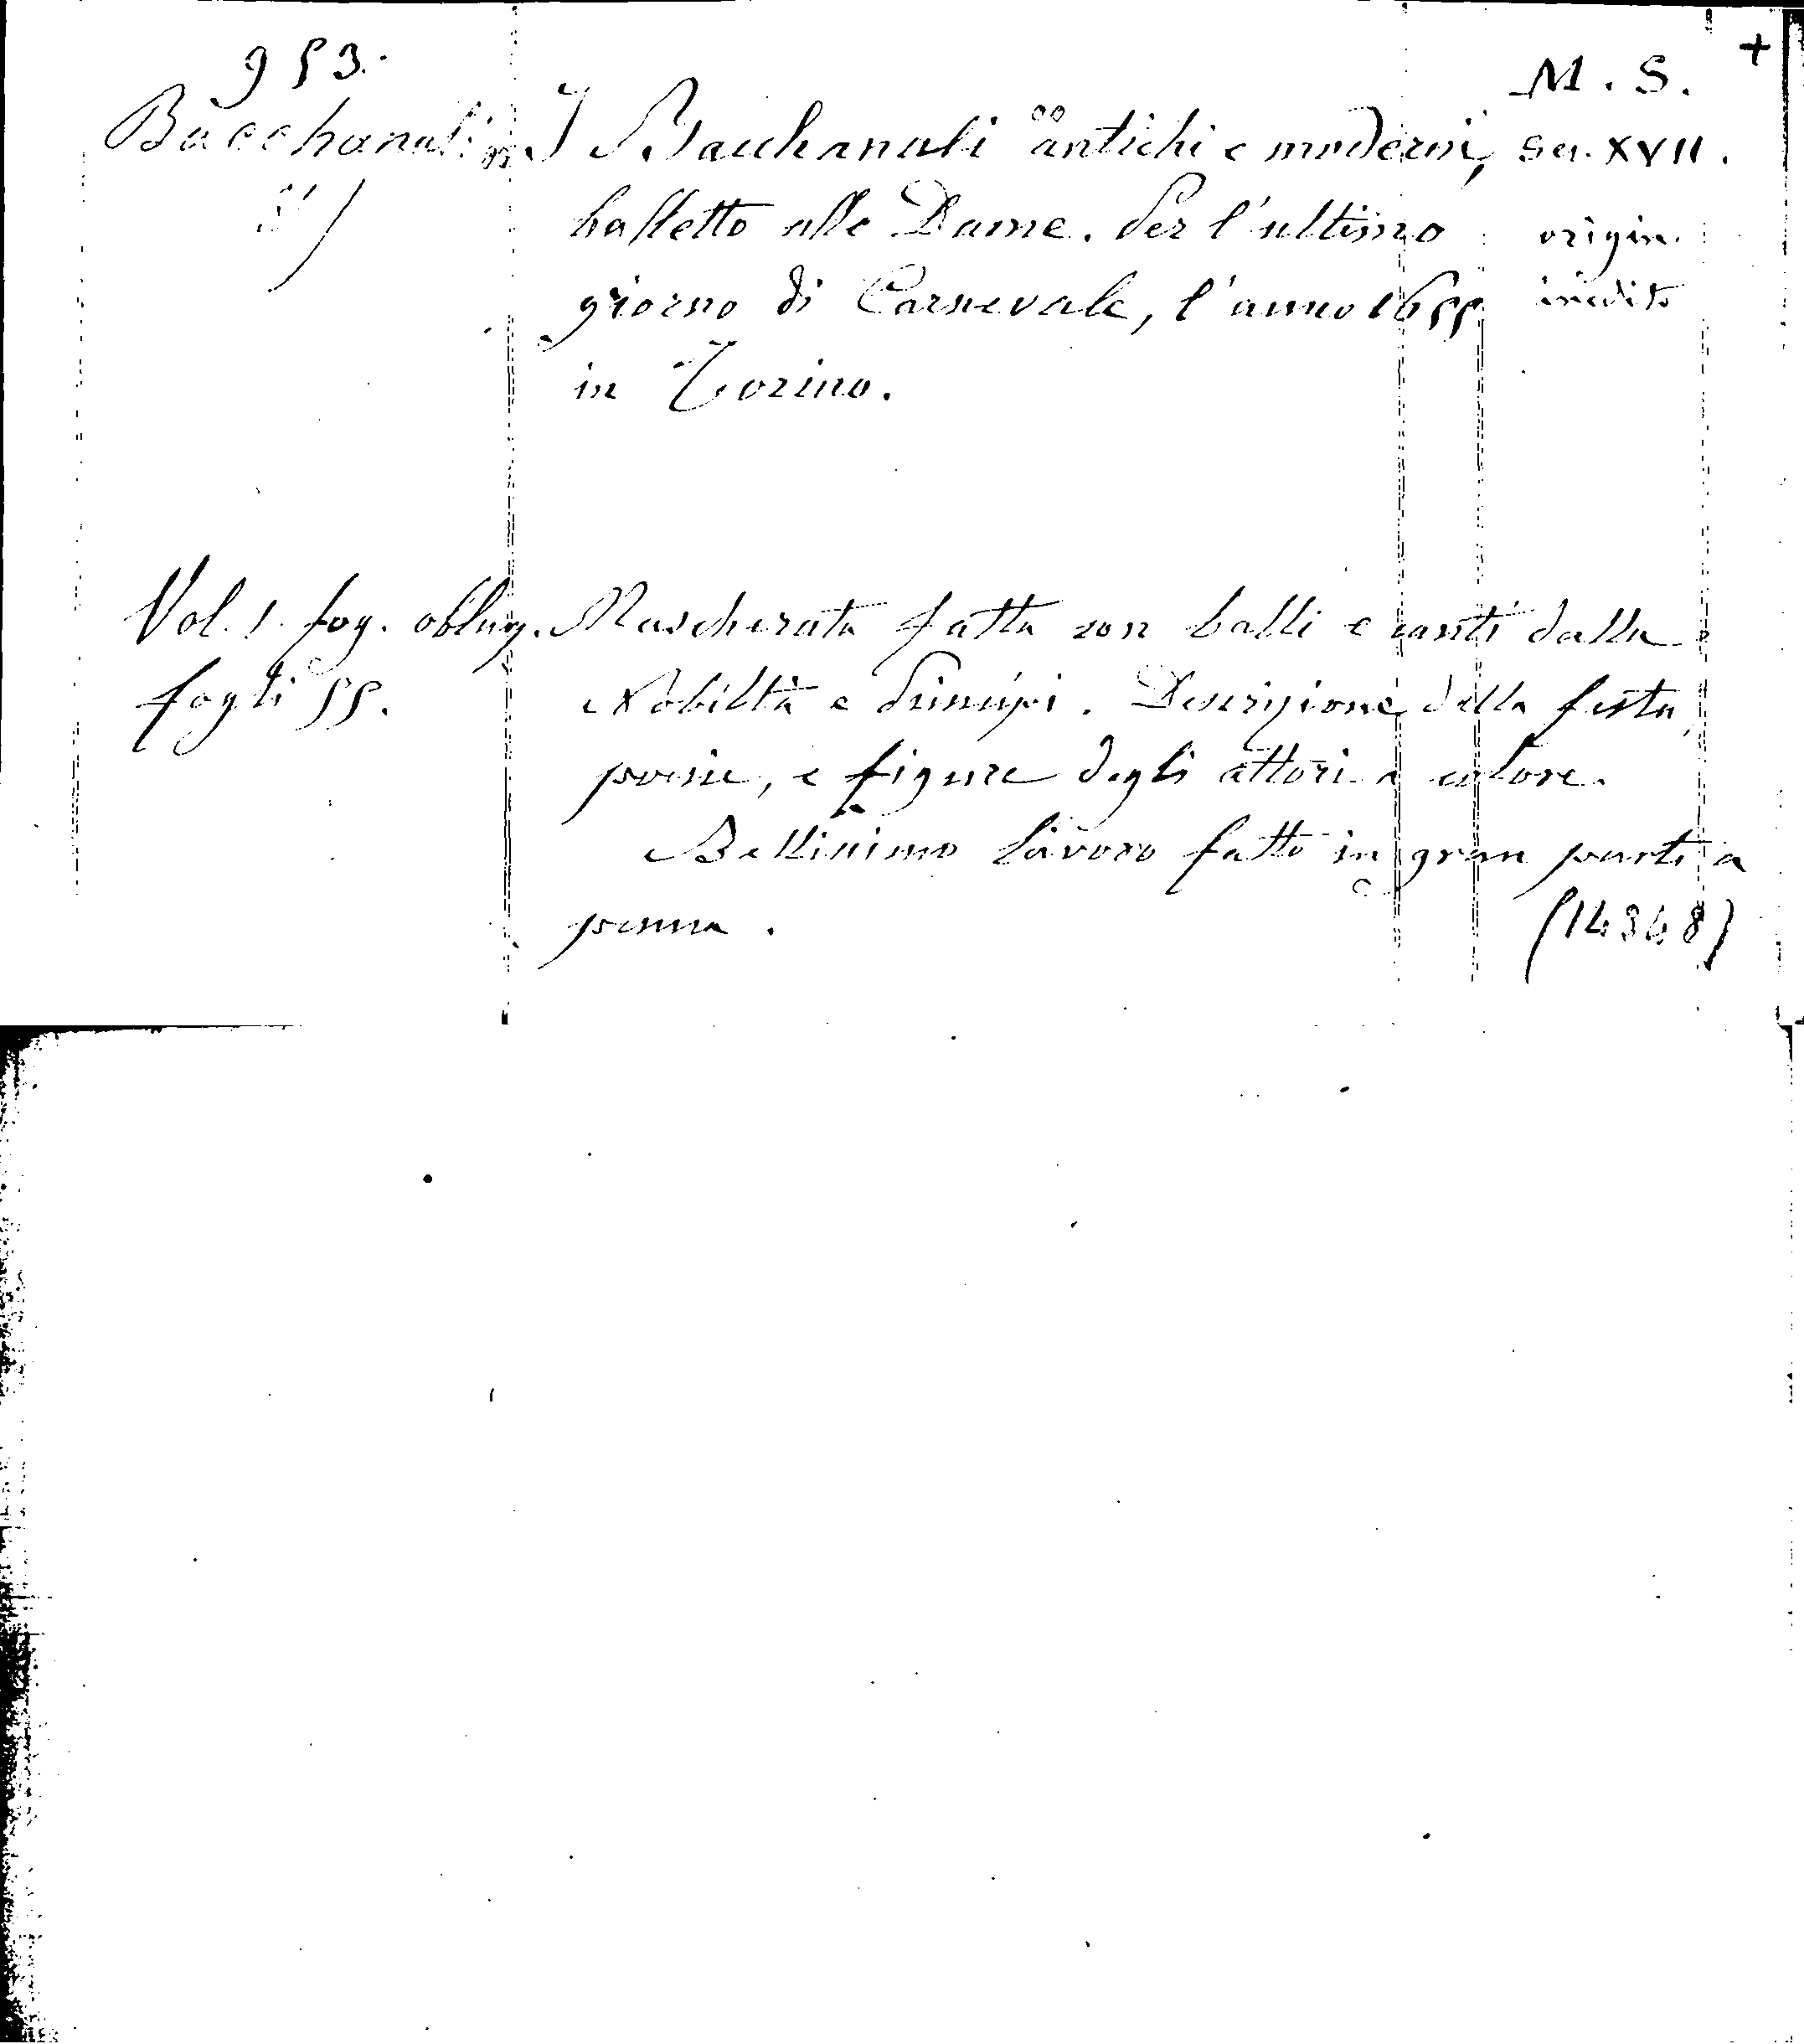 953.
M. S. +
Bacchanali. I Bacchanali antichi e moderni, sec. XVII.
balletto alle Dame. Per l'ultimo origin.
giorno di Carnevale, l'anno 1655 inedito
in Torino.
Vol. 1. fog. oblung. Mascherata fatta con balli e canti dalla
fogli 55. Nobiltà e Principi. Descrizione della festa,
poesie, e figure degli attori a colore.
Bellissimo lavoro fatto in gran parte a
penna. (14348)